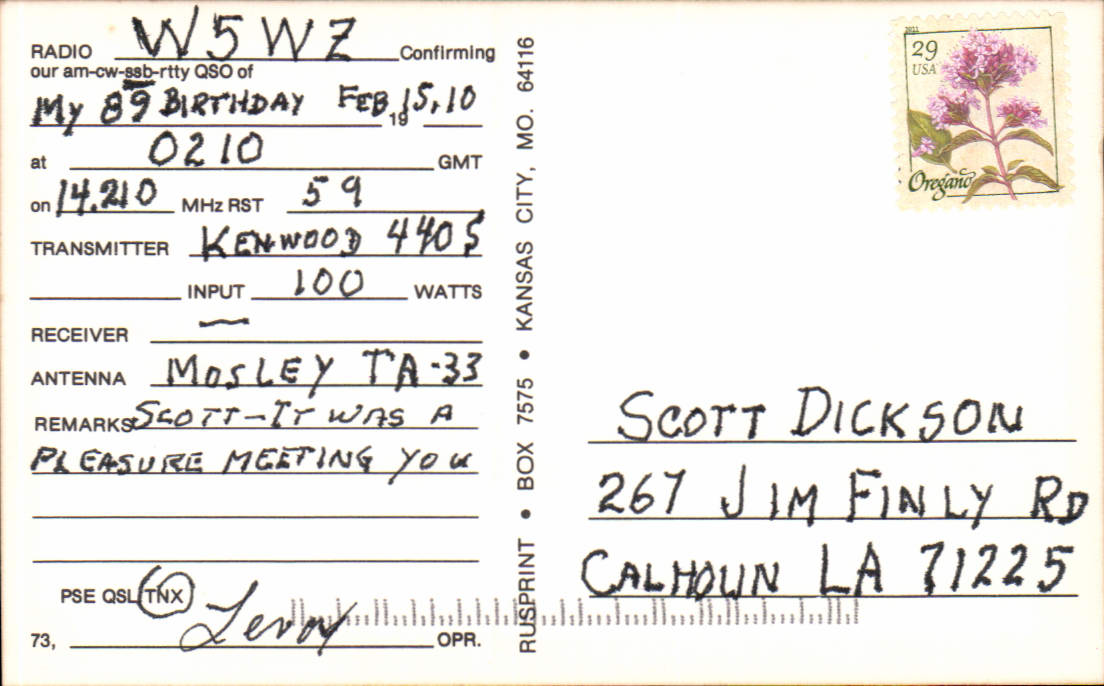 RADIO W5WZ Confirming
our am-cw-ssb-rtty QSO of
My 89 BIRTHDAY FEB 15, 10
19
at 0210 GMT
on 14.210 MHz RST 59
TRANSMITTER KENWOOD 440S
INPUT 100 WATTS
RECEIVER —
ANTENNA MOSLEY TA-33
REMARKS SCOTT - IT WAS A
PLEASURE MEETING YOU
PSE QSL TNX
73, Leroy OPR.
RUSPRINT • BOX 7575 • KANSAS CITY, MO. 64116
2011
29
USA
Oregano
SCOTT DICKSON
267 JIM FINLY RD
CALHOUN LA 71225